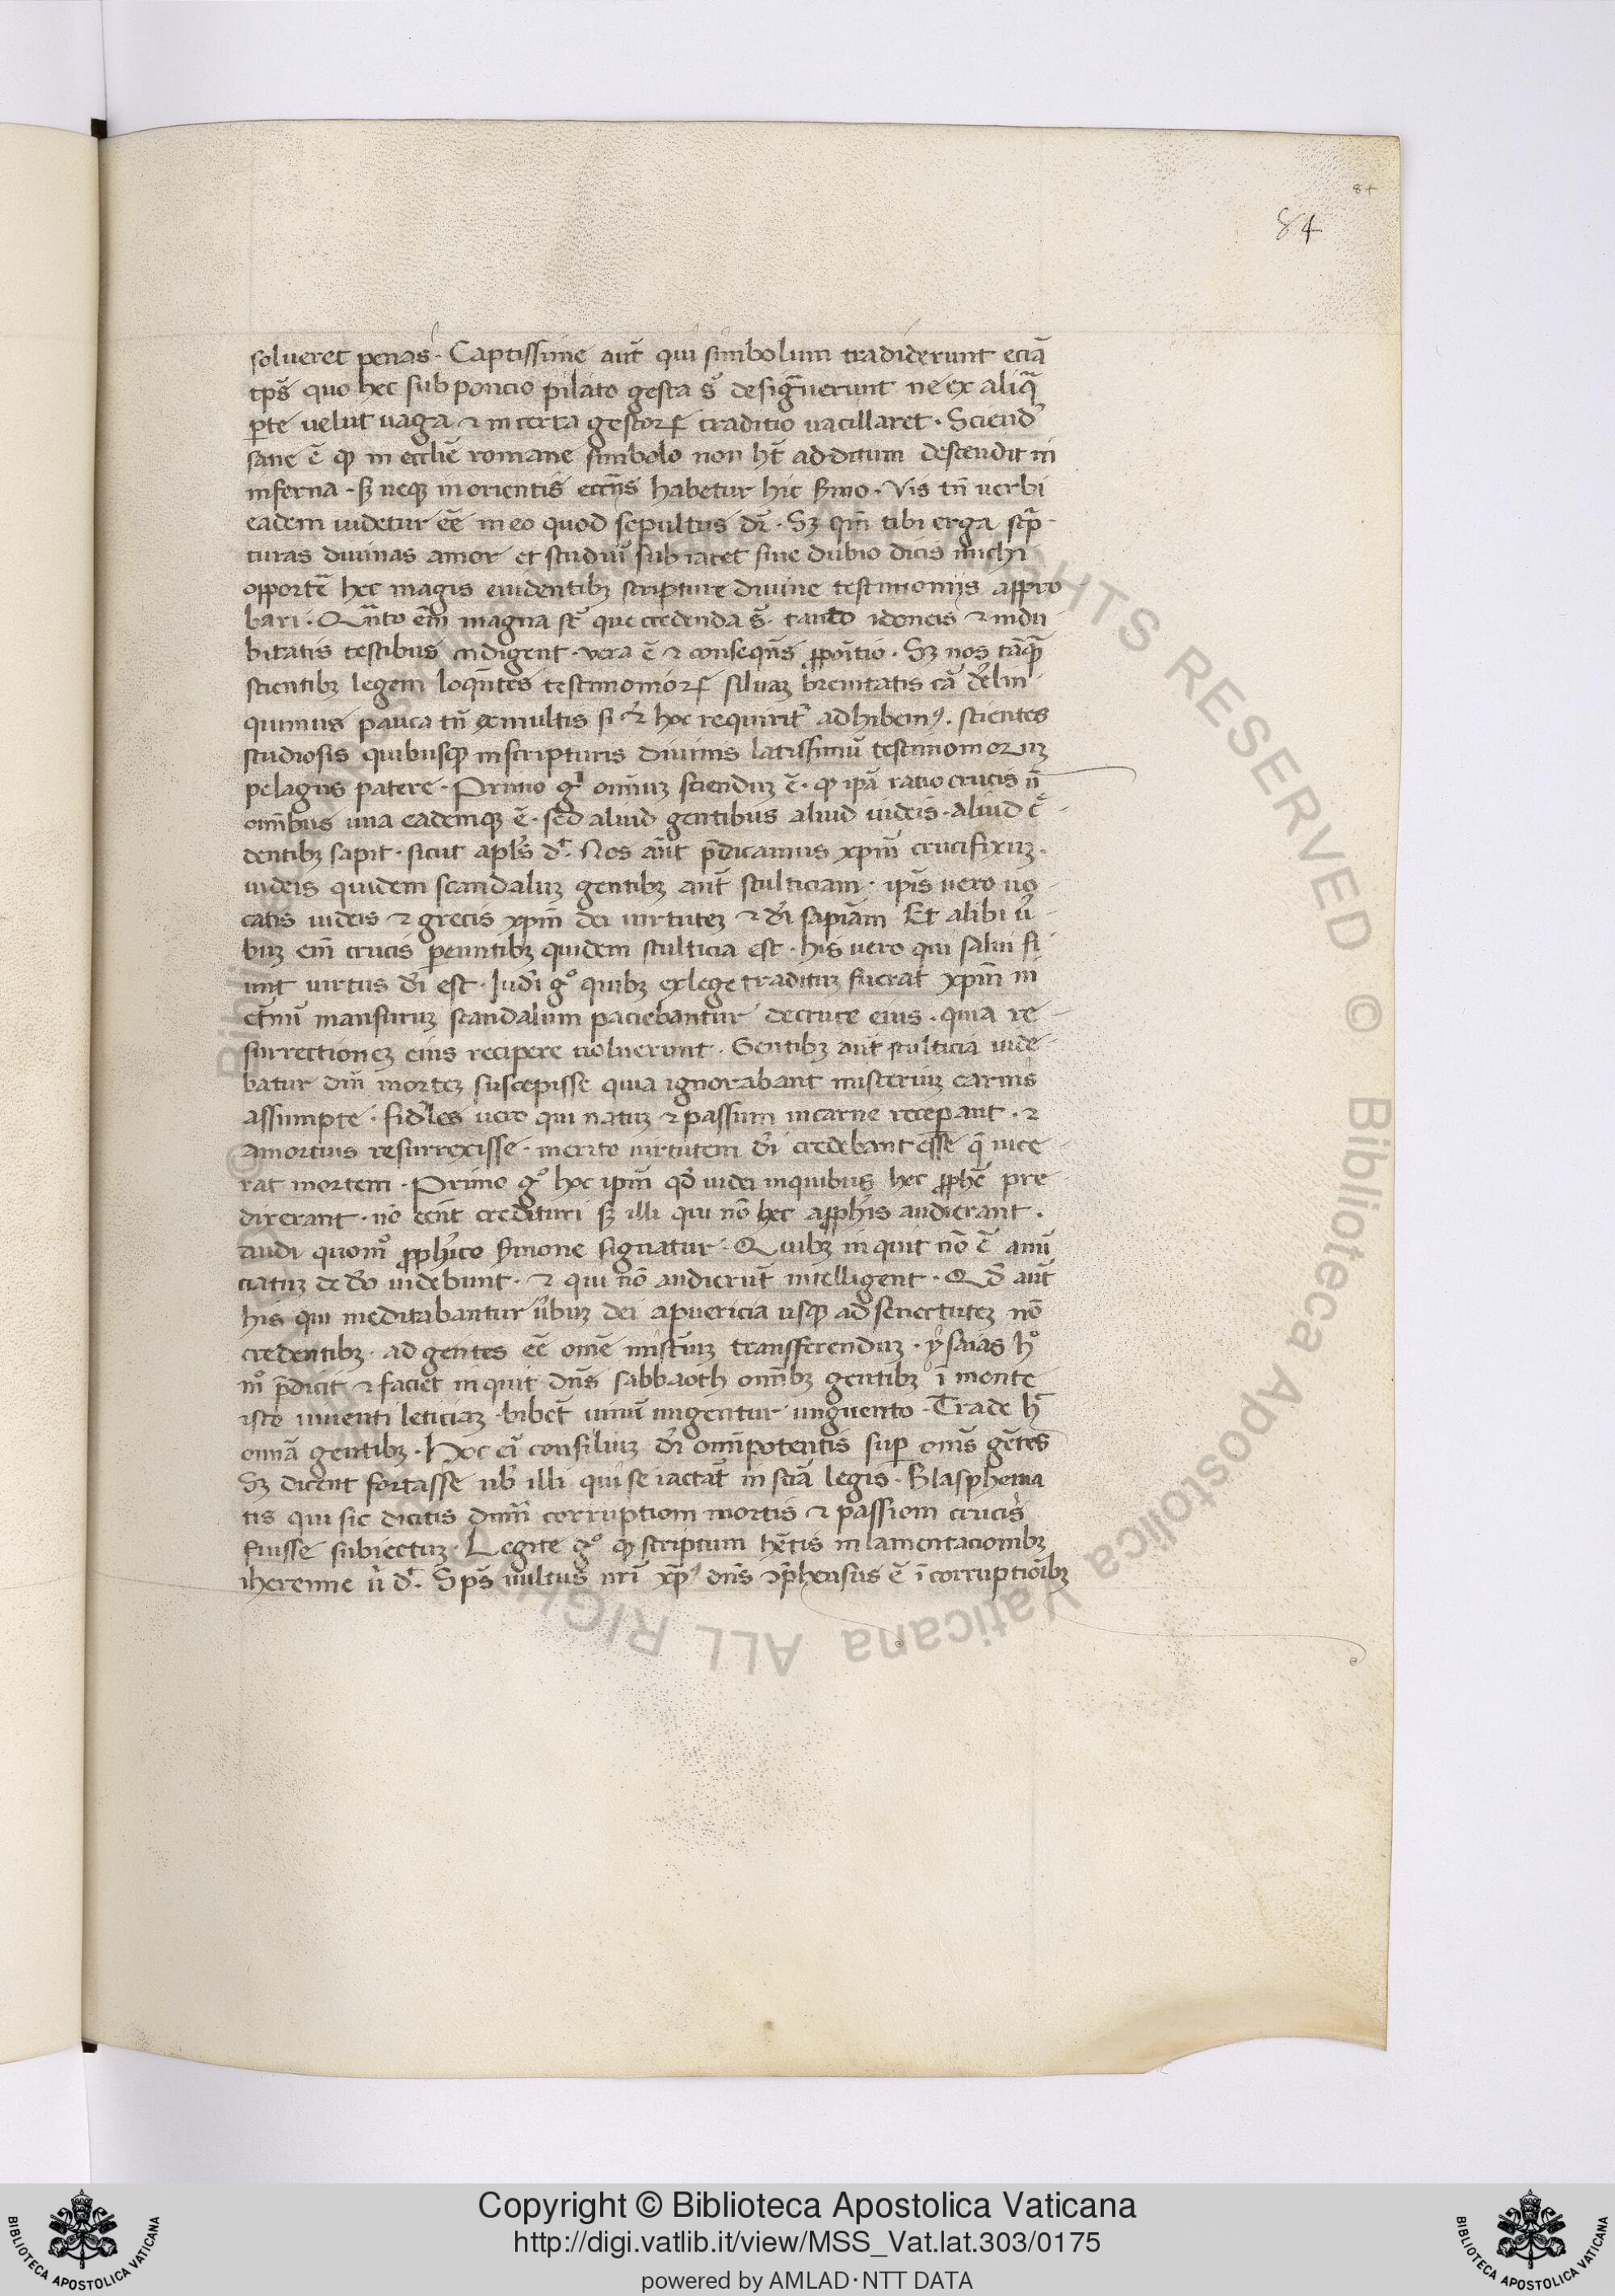 84
84
solueret penas · Captissime aut̄ qui simbolum tradiderunt eciā
tp̄s quo hec sub poncio pilato gesta s̄ desigͣuerunt ne ex aliqͣ
ꝑte uelut uaga ⁊ incerta gestoꝝ traditio uacillaret · Sciend̄
sane ē ꝙ in eccl̄ie romane simbolo non ht̄ additum descendit in
inferna · sꝫ neqꝫ in orientis eccl̄iis habetur hic s̄mo · Vis tn̄ uerbi
eadem uidetur eē in eo quod sepultus dr̄ · Sꝫ qm̄ tibi erga scͥp
turas diuinas amor et studiū subiacet sine dubio dicis michi
opportē hec magis euidentibꝫ scripture diuine testimonijs appro
bari · Qͣnto em̄ magna st̄ que credenda s̄ · tanto idoneis ⁊ indu
bitatis testibus indigent · vera ē ⁊ conseqn̄s ꝓpoītio · Sꝫ nos tāqͣ
scientibꝫ legem loqn̄tes testimonioꝝ siluaꝫ breuitatis cā derelin
quimus pauca tn̄ ex multis si ⁊ hoc requirit̄ adhibemꝰ · scientes
studiosis quibusqꝫ in scripturis diuinis latissimū testimonioruꝫ
pelagus patere · Primo gͥ omniuꝫ sciendūꝫ ē · ꝙ ipā ratio crucis n̄
omībus una eademqꝫ ē · sed aliud gentibus aliud iudeis · aliud c̄
dentibꝫ sapit · sicut apl̄s dͭ · Nos aūt p̄dicamus xpm̄ crucifixuꝫ ·
iudeis quidem scandaluꝫ gentibꝫ aut̄ stulticiam · ipīs uero uo
catis iudeis ⁊ grecis xpm̄ dei uirtuteꝫ ⁊ dī sapiām Et alibi ū
buꝫ em̄ crucis pereuntibꝫ quidem stulticia est · his uero qui salui fi
unt uirtus dī est · Iudī gͦ quibꝫ ex lege traditūꝫ fuerat xpm̄ in
et̄nū mansuruꝫ scandalum paciebantur de cruce eius · quia re
surrectioneꝫ eius recipere noluerunt · Gentibꝫ aut̄ stulticia uide
batur dm̄ morteꝫ suscepisse quia ignorabant misteriuꝫ carnis
assumpte · fideles uero qui natuꝫ ⁊ passum in carne receꝑant · ⁊
a mortuis resurrexisse · merito uirtutem dī credebant esse q̄ uice
rat mortem · Primo gͦ hoc ipm̄ qd̄ iudei in quibus hec ꝓphē pre
dixerant · nō eēnt credituri sꝫ illi qui nō hec a ꝓphīs audierant ·
audi quomͦ ꝓphīco s̄mone signatur · Quibꝫ inquit nō ē anū
ciatuꝫ de eo uidebunt · ⁊ qui nō audierūt intelligent · Qd̄ aut̄
his qui meditabantur ūbuꝫ dei a puericia usqꝫ ad senectuteꝫ nō
credentibꝫ · ad gentes eē omē mist̄iuꝫ transfferenduꝫ · ysaias hͦ
mͦ p̄dicit ⁊ faciet inquit dn̄s sabbaoth omībꝫ gentibꝫ ī monte
isto uiuenti leticiaꝫ · bibēt uinū ungentur unguento · Trade hͨ
omīa gentibꝫ · Hoc eī consiliuꝫ dī omīpotentis suꝑ omīs gētes
Sꝫ dicent fortasse nb̄ illi qui se iactāt in sciā legis · Blasphema
tis qui sic dicitis dn̄m corruptiom mortis ⁊ passiom crucis
fuisse subiectuꝫ · Legite gͦ ꝙ scriptum hētis in lamentacionibꝫ
iheremie ū dͭ · Sps̄ uultus nr̄i xp̄ꝰ dn̄s ꝯp̄hensus ē ī corruptioībꝫ
Copyright © Biblioteca Apostolica Vaticana
http://digi.vatlib.it/view/MSS_Vat.lat.303/0175
powered by AMLAD·NTT DATA
BIBLIOTECA APOSTOLICA VATICANA
BIBLIOTECA APOSTOLICA VATICANA
© Biblioteca Apostolica Vaticana ALL RIGHTS RESERVED